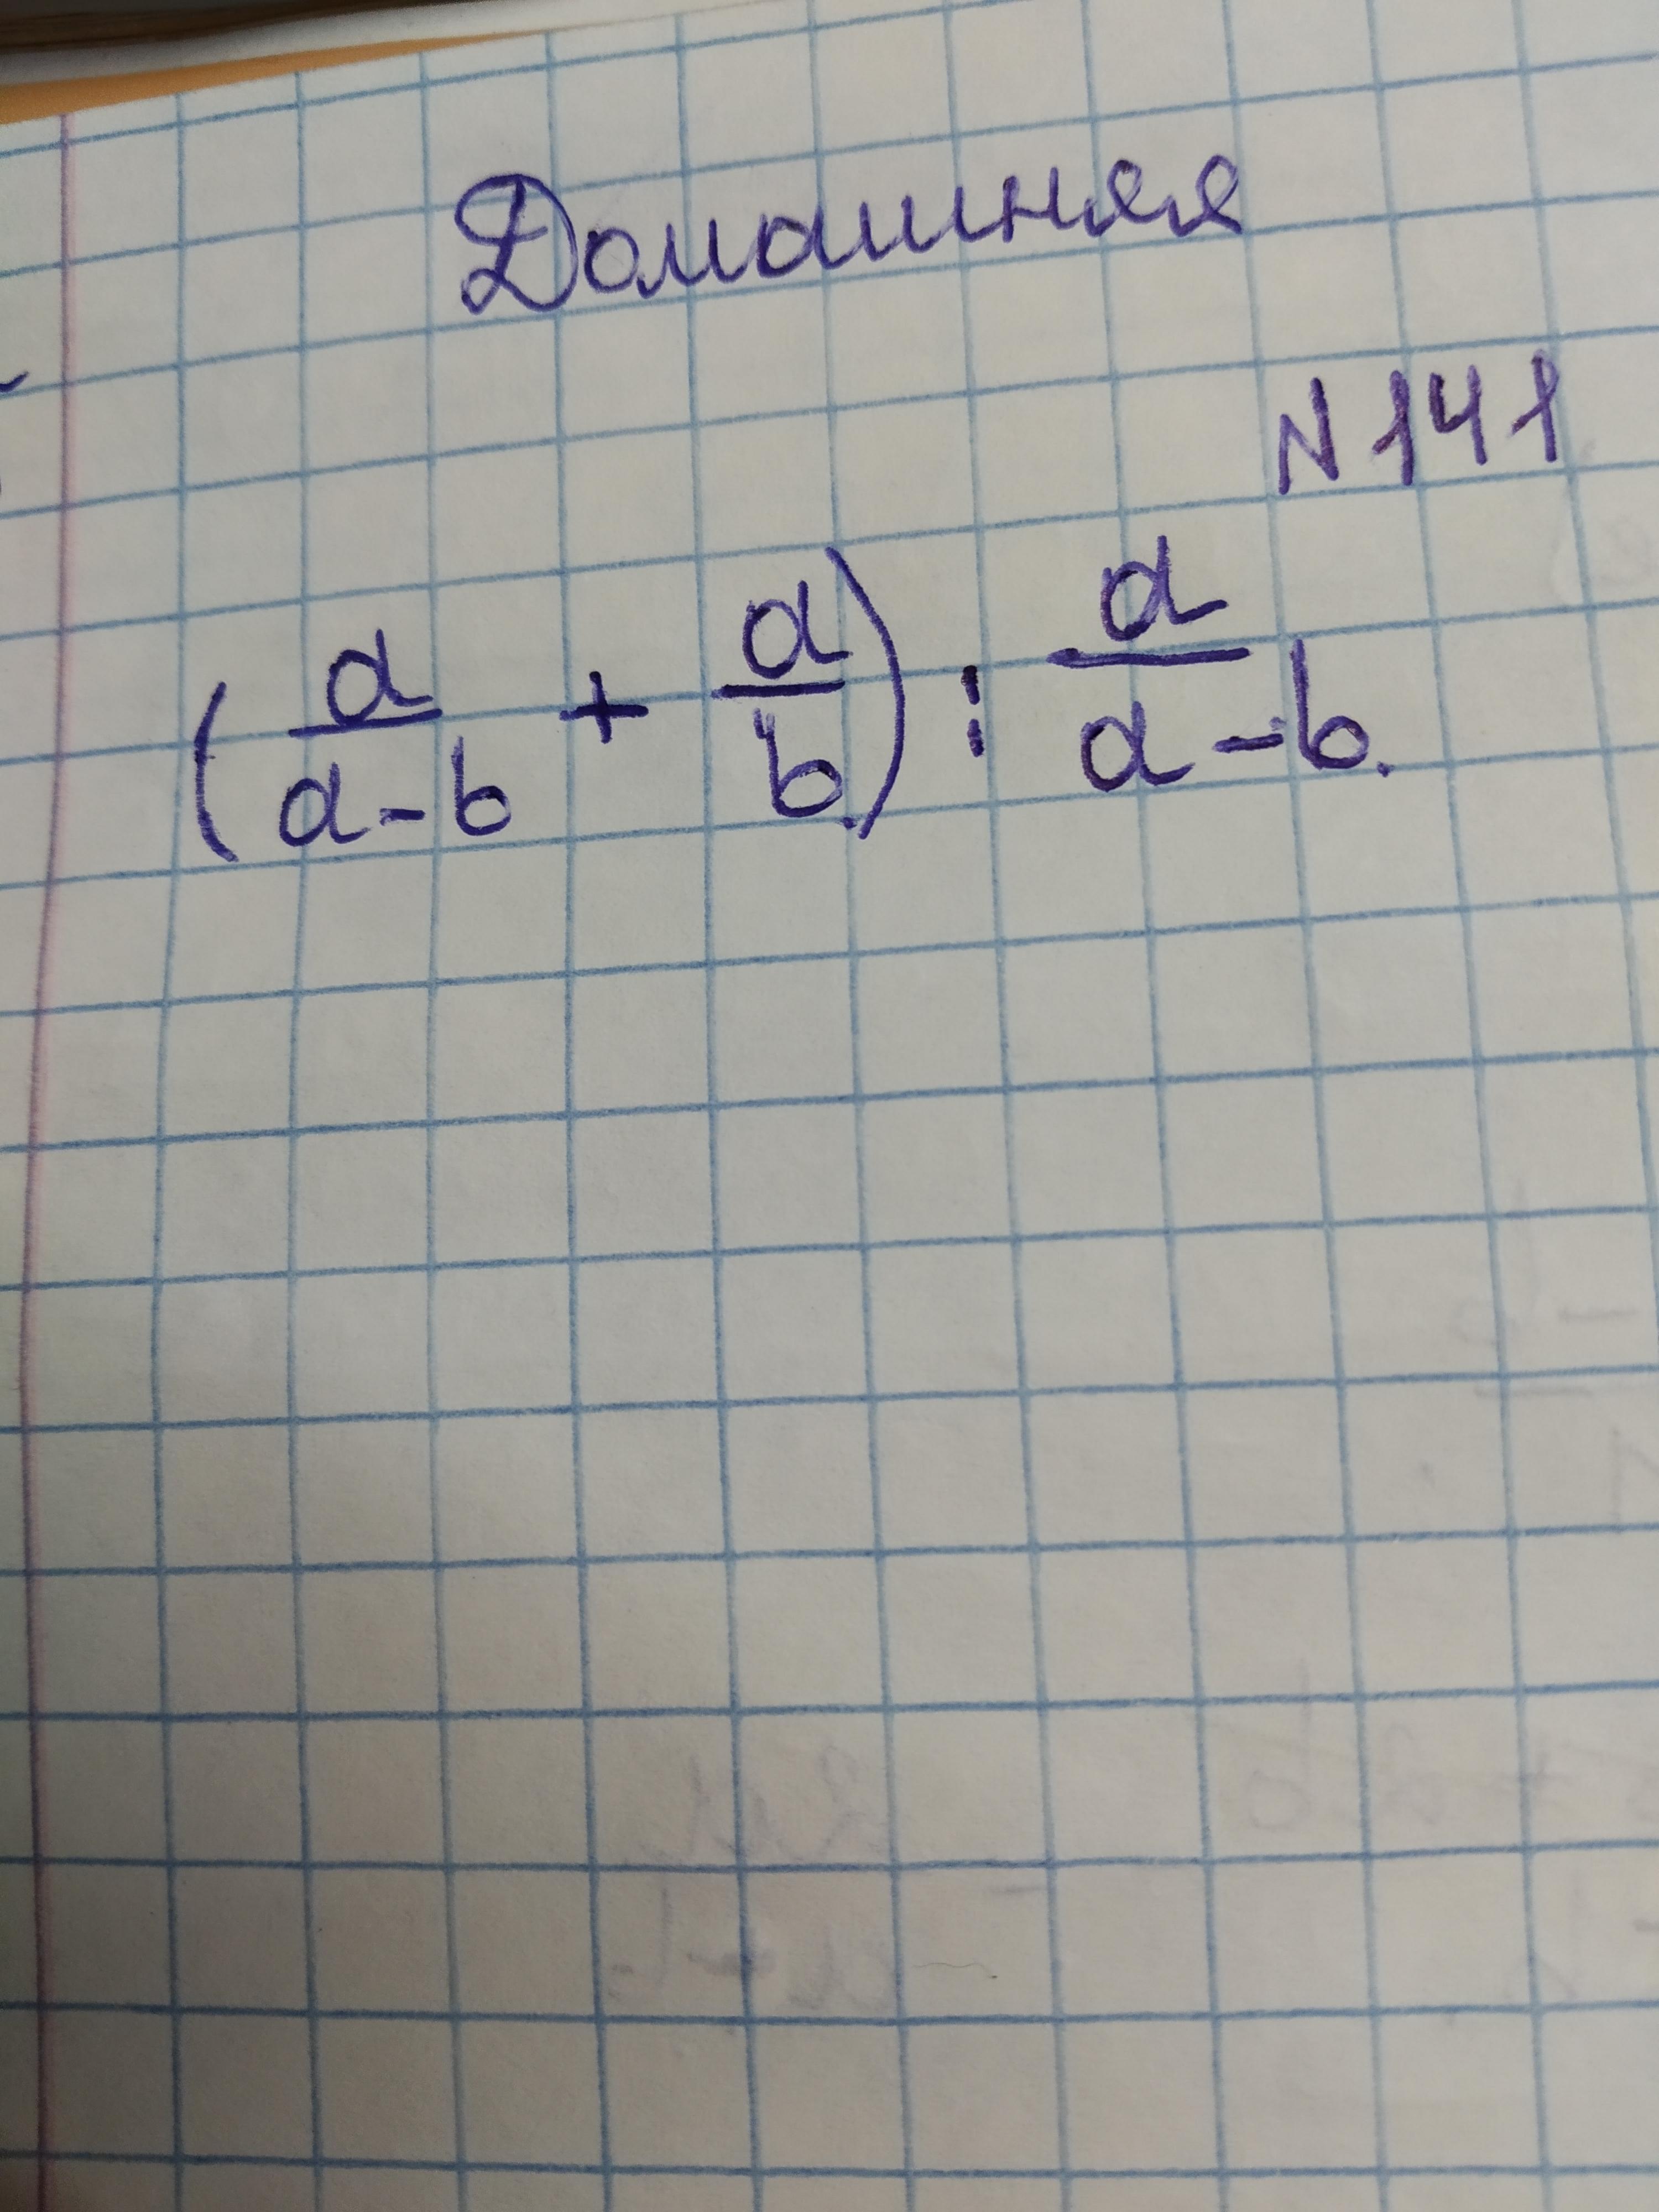 Домашняя
N 141
(a/(a-b) + a/b) : a/(a-b).